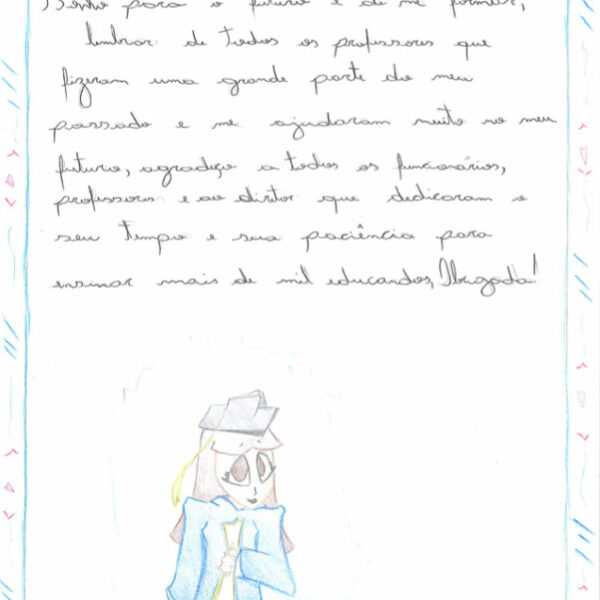 Sonho para o futuro é de me formar,
lembrar de todos os professores que
fizeram uma grande parte do meu
passado e me ajudaram muito no meu
futuro, agradeço a todos os funcionários,
professores e ao diretor que dedicaram o
seu tempo e sua paciência para
ensinar mais de mil educandos, Obrigada!